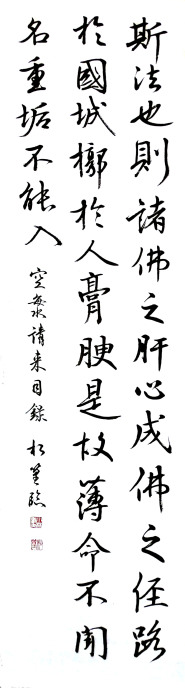 斯法也則諸佛之肝心成佛之径路
於國城槨於人膏腴是故薄命不聞
名重垢不能入
空海請来目録 臨